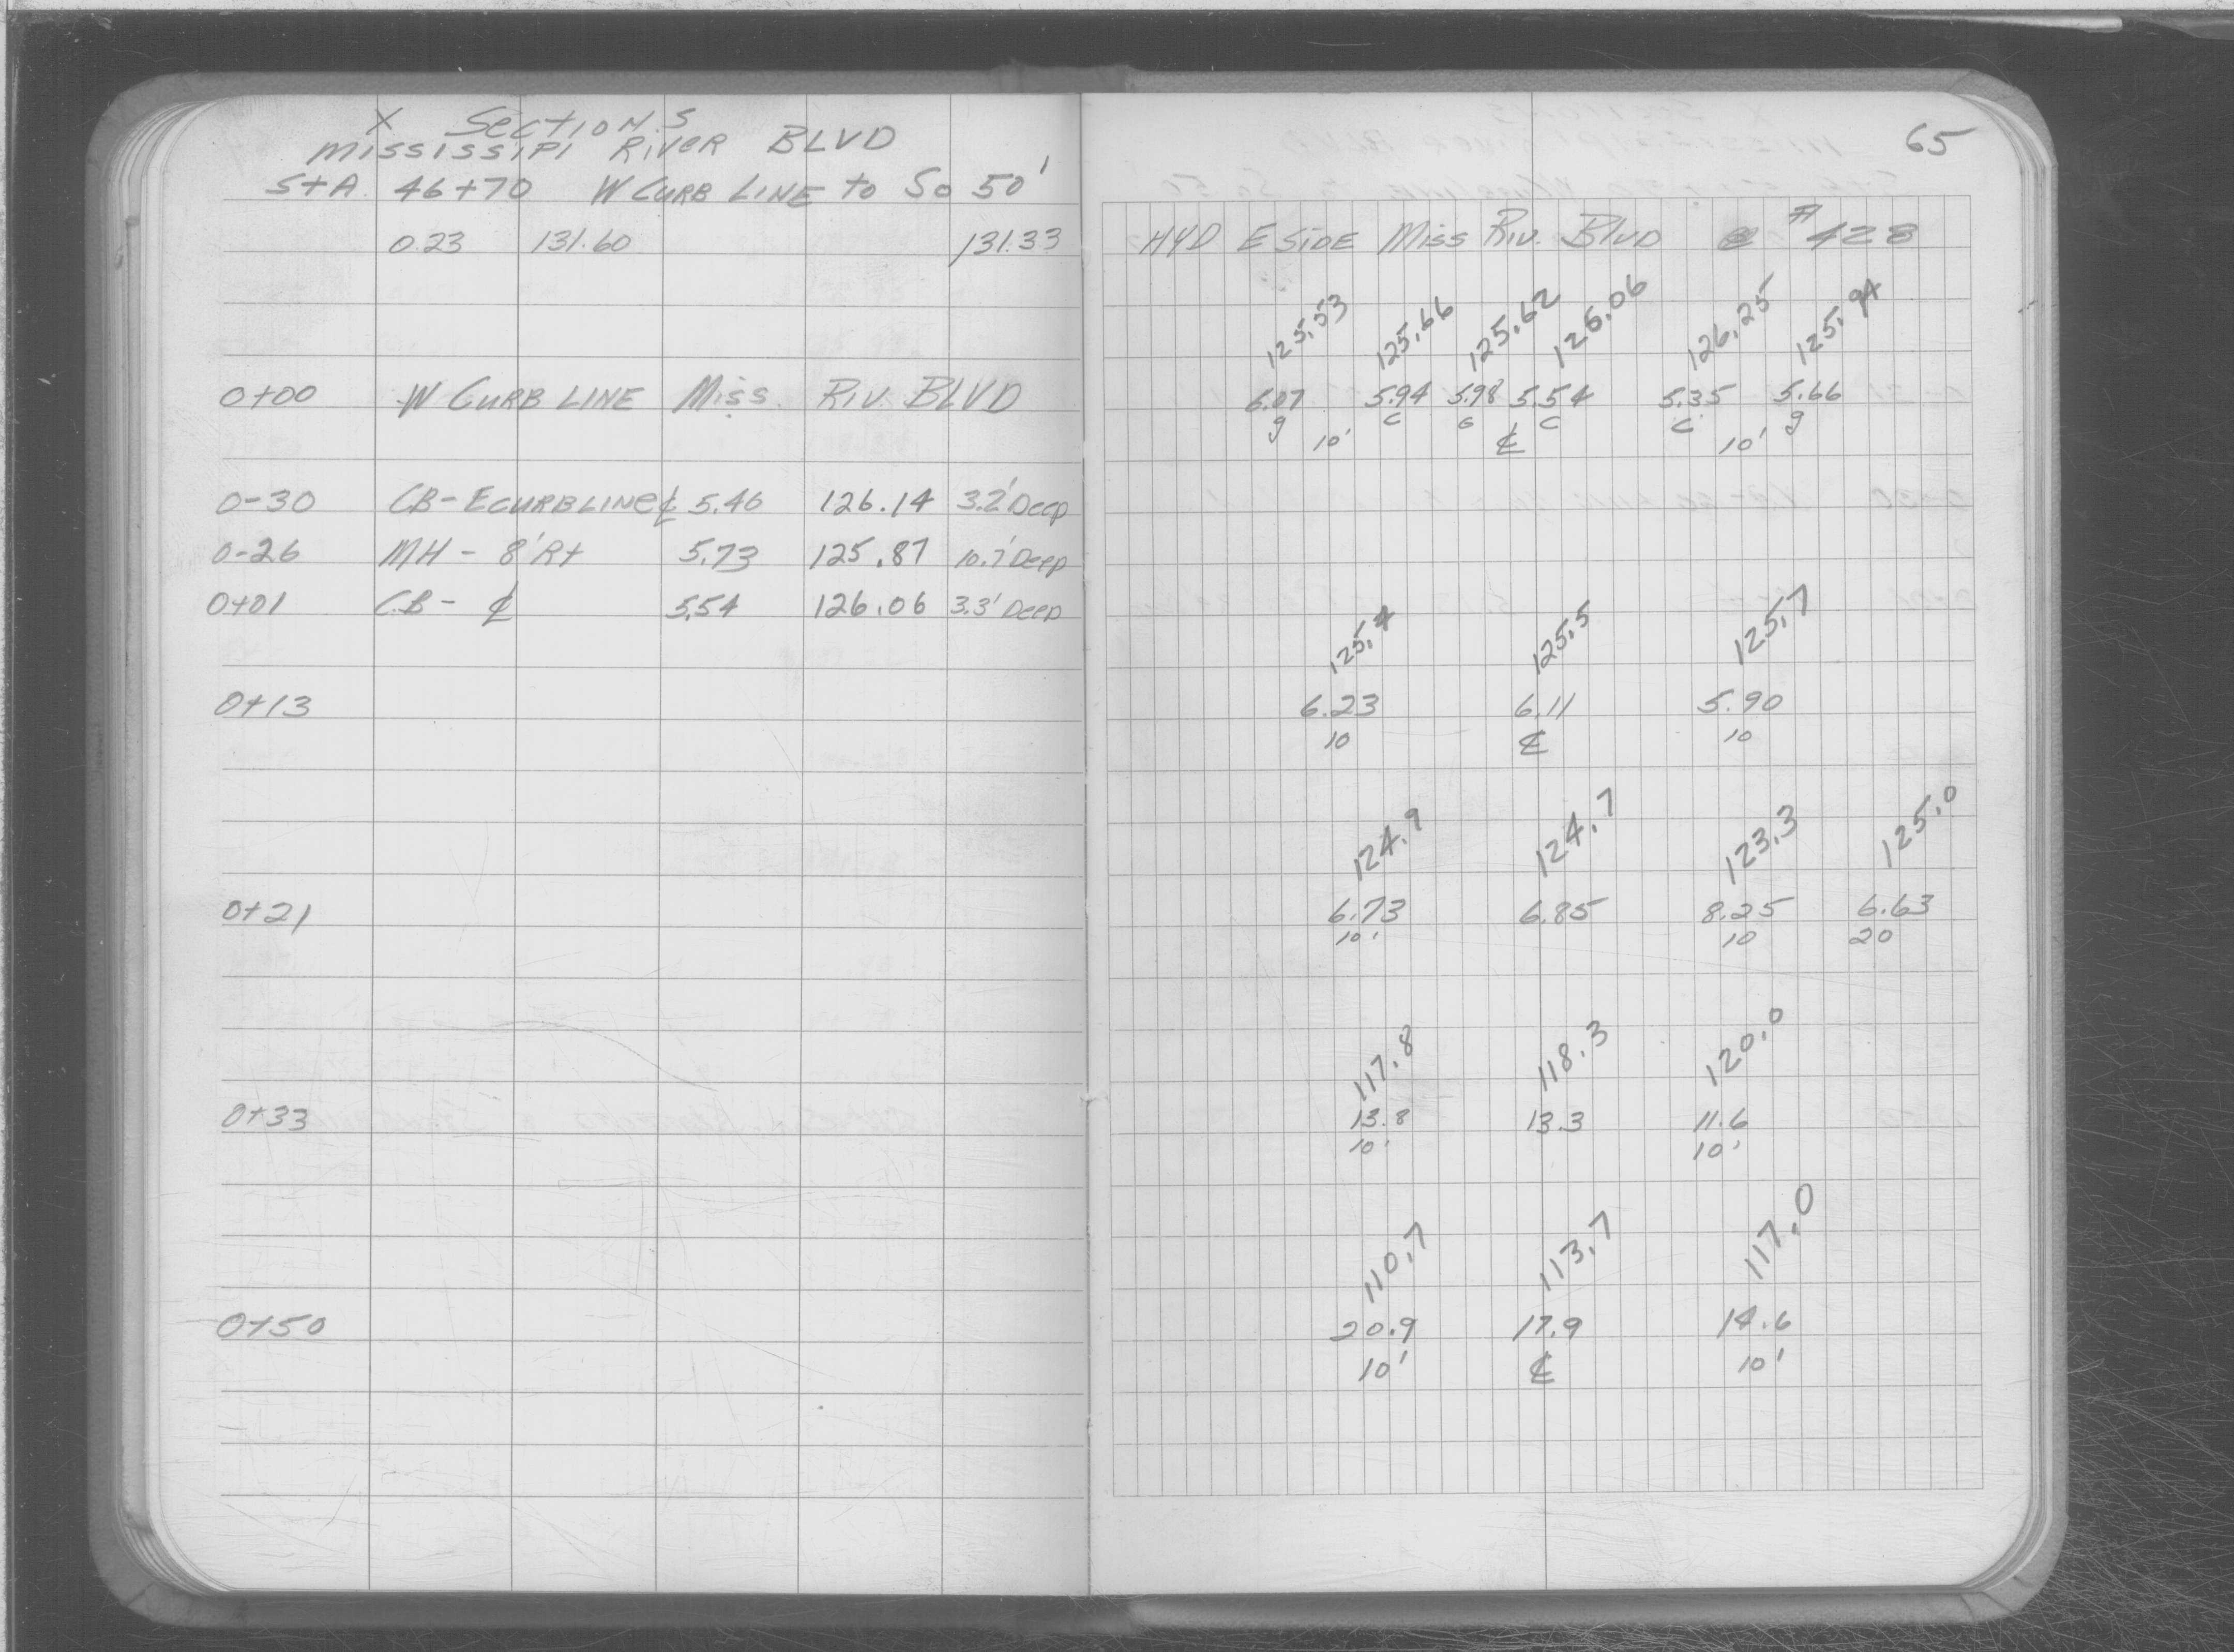 X Sections
Mississipi River BLVD
StA. 46+70 W Curb Line to So 50'
0.23 131.60 131.33
0+00 W Curb Line Miss. Riv. BLVD
0-30 CB- E curb line ₵ 5.46 126.14 3.2' Deep
0-26 MH - 8' Rt 5.73 125.87 10.7' Deep
0+01 C.B - ₵ 5.54 126.06 3.3' Deep
0+13
0+21
0+33
0+50
65
HYD E Side Miss Riv. Blvd @ #428
125.53 125.66 125.62 126.06 126.25 125.94
6.07 5.94 5.98 5.54 5.35 5.66
g 10' c G ₵ c c 10' g
125.4 125.5 125.7
6.23 6.11 5.90
10 ₵ 10
124.9 124.7 123.3 125.0
6.73 6.85 8.25 6.63
10' 10 20
117.8 118.3 120.0
13.8 13.3 11.6
10' 10'
110.7 113.7 117.0
20.9 17.9 14.6
10' ₵ 10'